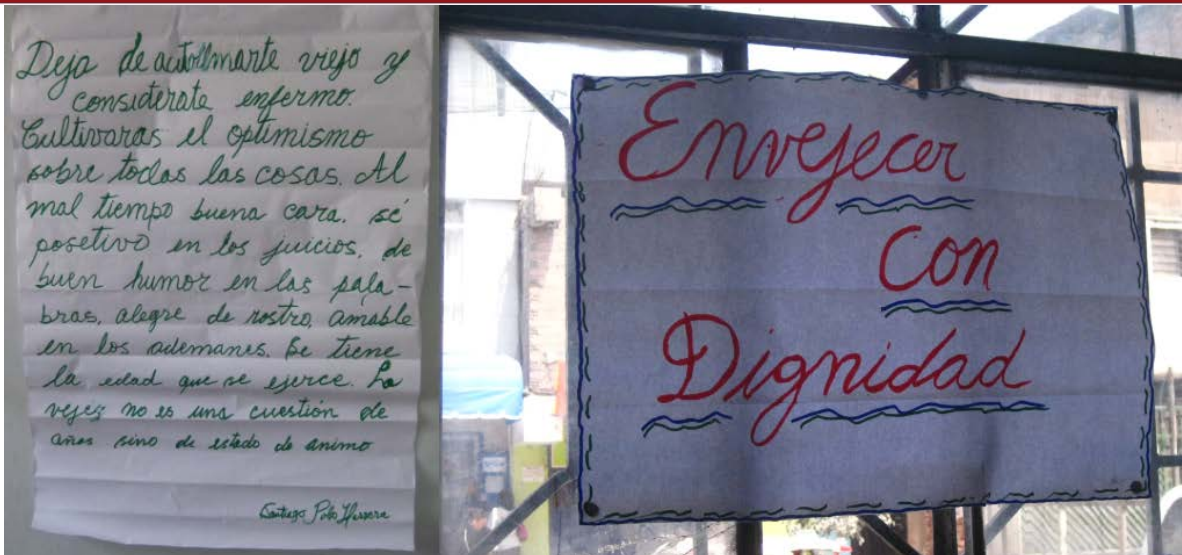 Deja de autollmarte viejo y
considerate enfermo.
Cultivaras el optimismo
sobre todas las cosas. Al
mal tiempo buena cara. sé
posetivo en los juicios, de
buen humor en las pala-
bras, alegre de rostro, amable
en los ademanes. Se tiene
la edad que se ejerce. La
vejez no es una cuestión de
años sino de estado de animo
Santiago Polo Herrera
Envejecer
con
Dignidad